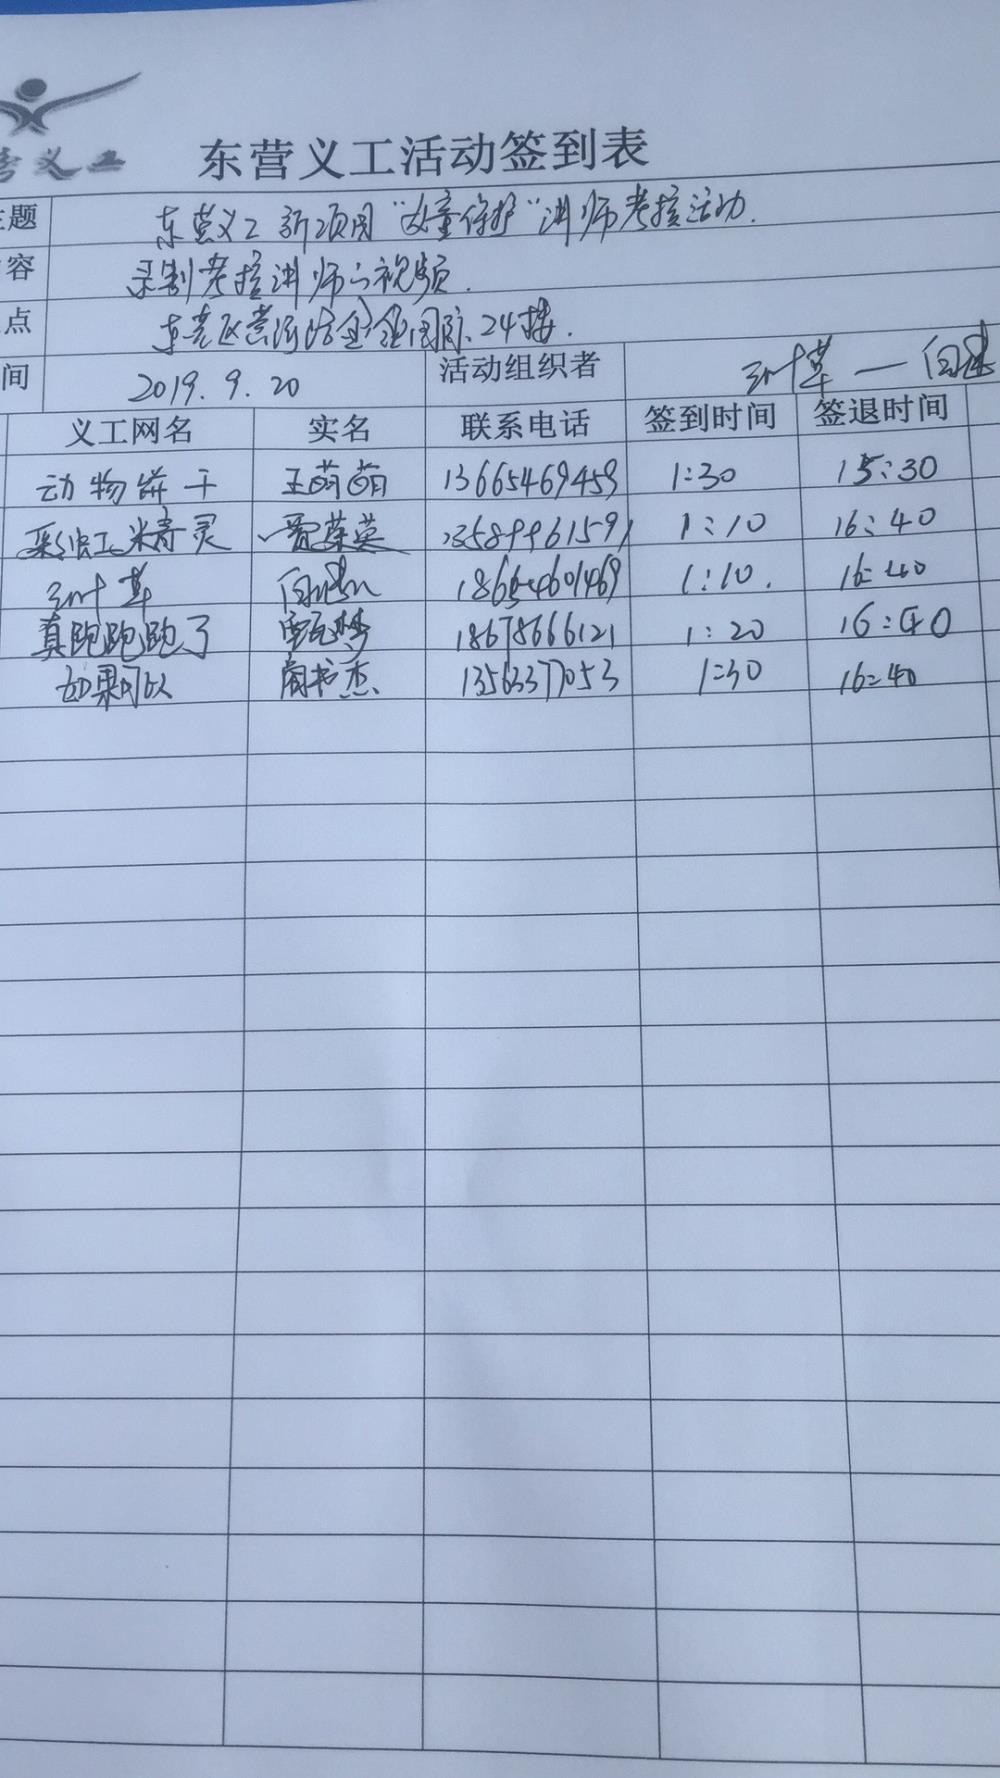 营义工
东营义工活动签到表
主题 东营义工新项目“女童保护”讲师考核活动.
容 录制考核讲师的视频.
点 东营区黄河路 国际.24楼.
间 2019.9.20 活动组织者 三叶草——白
义工网名 实名 联系电话 签到时间 签退时间
动物饼干 王萌萌 13665469459 1:30 15:30
彩虹米寿灵 贾荣英 13589961591 1:10 16:40
三叶草 白 18654601469 1:10. 16:40
真跑跑跑了 梦 18678666121 1:20 16:40
如果可以 书杰 13563377053 1:30 16:40